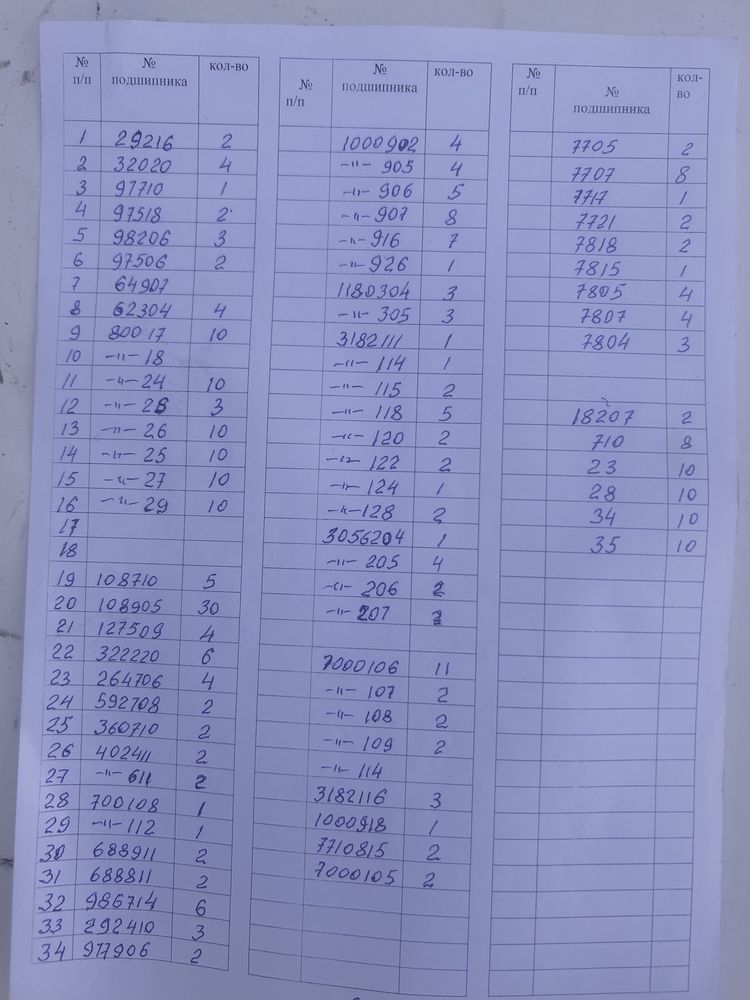 № п/п № подшипника кол-во
1 29216 2
2 32020 4
3 97710 1
4 97518 2
5 98206 3
6 97506 2
7 64907
8 62304 4
9 80017 10
10 -"- 18
11 -"- 24 10
12 -"- 28 3
13 -"- 26 10
14 -"- 25 10
15 -"- 27 10
16 -"- 29 10
17
18
19 108710 5
20 108905 30
21 127509 4
22 322220 6
23 264706 4
24 592708 2
25 360710 2
26 402411 2
27 -"- 611 2
28 700108 1
29 -"- 112 1
30 688911 2
31 688811 2
32 986714 6
33 292410 3
34 977906 2
№ п/п № подшипника кол-во
1000902 4
-"- 905 4
-"- 906 5
-"- 907 8
-"- 916 7
-"- 926 1
1180304 3
-"- 305 3
3182111 1
-"- 114 1
-"- 115 2
-"- 118 5
-"- 120 2
-"- 122 2
-"- 124 1
-"- 128 2
3056204 1
-"- 205 4
-"- 206 2
-"- 207
7000106 11
-"- 107 2
-"- 108 2
-"- 109 2
-"- 114
3182116 3
1000918 1
7710815 2
7000105 2
№ п/п № подшипника кол-во
7705 2
7707 8
7717 1
7721 2
7818 2
7815 1
7805 4
7807 4
7804 3
18207 2
710 8
23 10
28 10
34 10
35 10